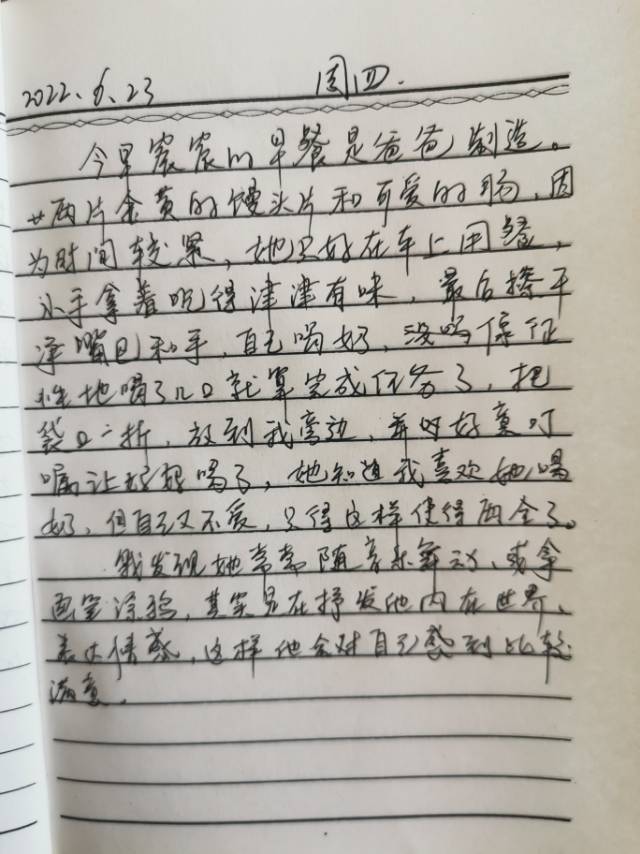 2022.6.23 周四.
今早宸宸的早餐是爸爸制造。
两片金黄的馒头片和可爱的肠,因
为时间较紧,她只好在车上用餐,
小手拿着吃得津津有味,最后擦干
净嘴巴和手,自己喝奶,没吗保证
性地喝了几口就算完成任务了,把
袋口一折,放到我旁边,并好意叮
嘱让妈妈喝了,她知道我喜欢她喝
奶,但自己又不爱,只得这样使得两全了。
我发现她常常随音乐舞动,或拿
画笔涂鸦,其实是在抒发他内在世界、
表达情感,这样他会对自己感到比较
满意.